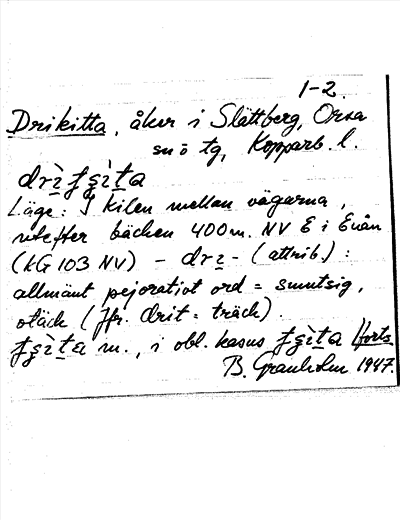 1-2.
Drikitta, åker i Slättberg, Orsa
sn ö tg, Kopparb. l.
Läge: I kilen mellan vägarna,
utefter bäcken 400 m. NV E i Enån
(KG 103 NV) - drı- (attrib.):
allmänt pejorativt ord = smutsig,
otäck (Jfr. drit = träck).
m., i obl. kasus (forts
B. Granholm 1947.